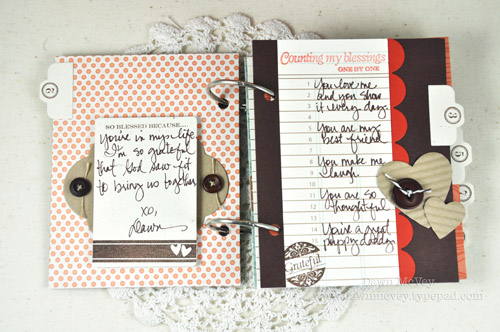 2
SO BLESSED BECAUSE....
You're in my life
I'm so grateful
that God saw fit
to bring us together.
xo,
Dawn
Counting my blessings
ONE BY ONE
1 You love me
2 and you show
3 it every day.
You are my
best friend.
You make me
laugh.
You are so
thoughtful.
You're a great
puppy daddy.
14
Grateful
3
5
6
Dawn McVey
www.dawnmcvey.typepad.com